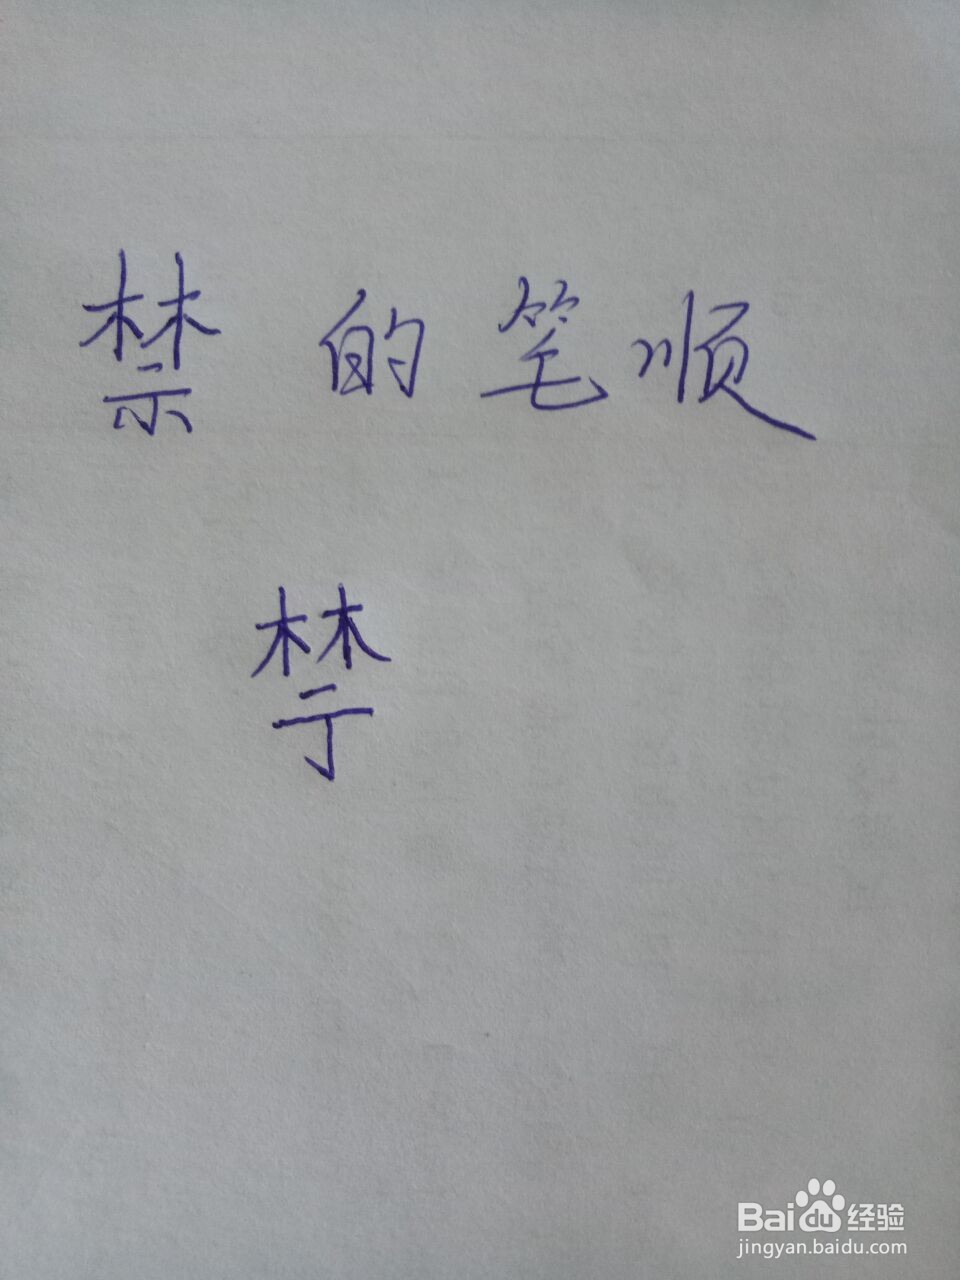 禁的笔顺
Baidu经验
jingyan.baidu.com